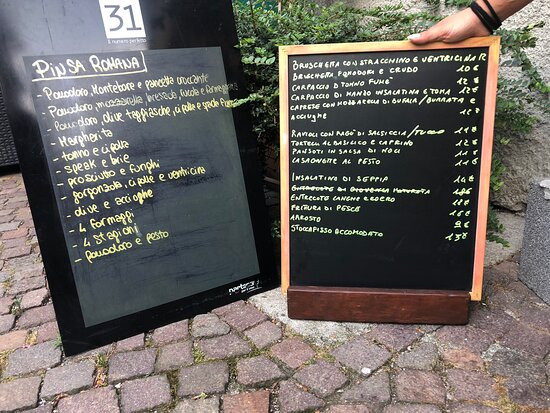 31
il numero perfetto
PINSA ROMANA
- Pomodoro, Montebore e pancetta croccante
- Pomodoro mozzarella bresaola rucola e formaggio
- Pomodoro, olive taggiasche, cipolle e speck
- Margherita
- tonno e cipolla
- speak e brie
- prosciutto e funghi
- gorgonzola, cipolle e ventricina
- olive e acciughe
- 4 formaggi
- 4 stagioni
- pomodoro e pesto
BRUSCHETTA CON STRACCHINO E VENTRICINA
BRUSCHETTA POMODORO E CRUDO 10 €
CARPACCIO DI TONNO FUME' 12 €
CARPACCIO DI MANZO INSALATINO E TOMA 12 €
CAPRESE CON MOZZARELLA DI BUFALA / BURRATA E 12 €
ACCIUGHE
RAVIOLI CON RAGÙ DI SALSICCIA
TORTELLI AL BASILICO E CAPRINO 12 €
PANSOTI IN SALSA DI NOCI 11 €
LASAGNETTE AL PESTO 11 €
INSALATINO DI SEPPIA
ENTRECOTE
FRITTURA DI PESCE 16 €
ARROSTO
STOCCAFISSO ACCOMODATO 15 €